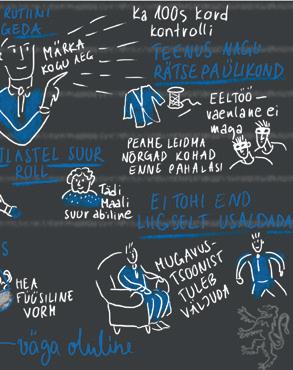 RUTIINI
GEDA
MÄRKA
KOGU AEG
Ka 100s kord
kontrolli
TEENUS NAGU
RÄTSEPAÜLIKOND
EELTÖÖ-
vaenlane ei
maga
PEAME LEIDMA
NÕRGAD KOHAD
ENNE PAHALASI
ILASTEL SUUR
ROLL
Tädi
Maali
suur abiline
EI TOHI END
LIIGSELT USALDADA
S
HEA
FÜÜSILINE
VORM
MUGAVUS-
TSOONIST
TULEB
VÄLJUDA
väga oluline